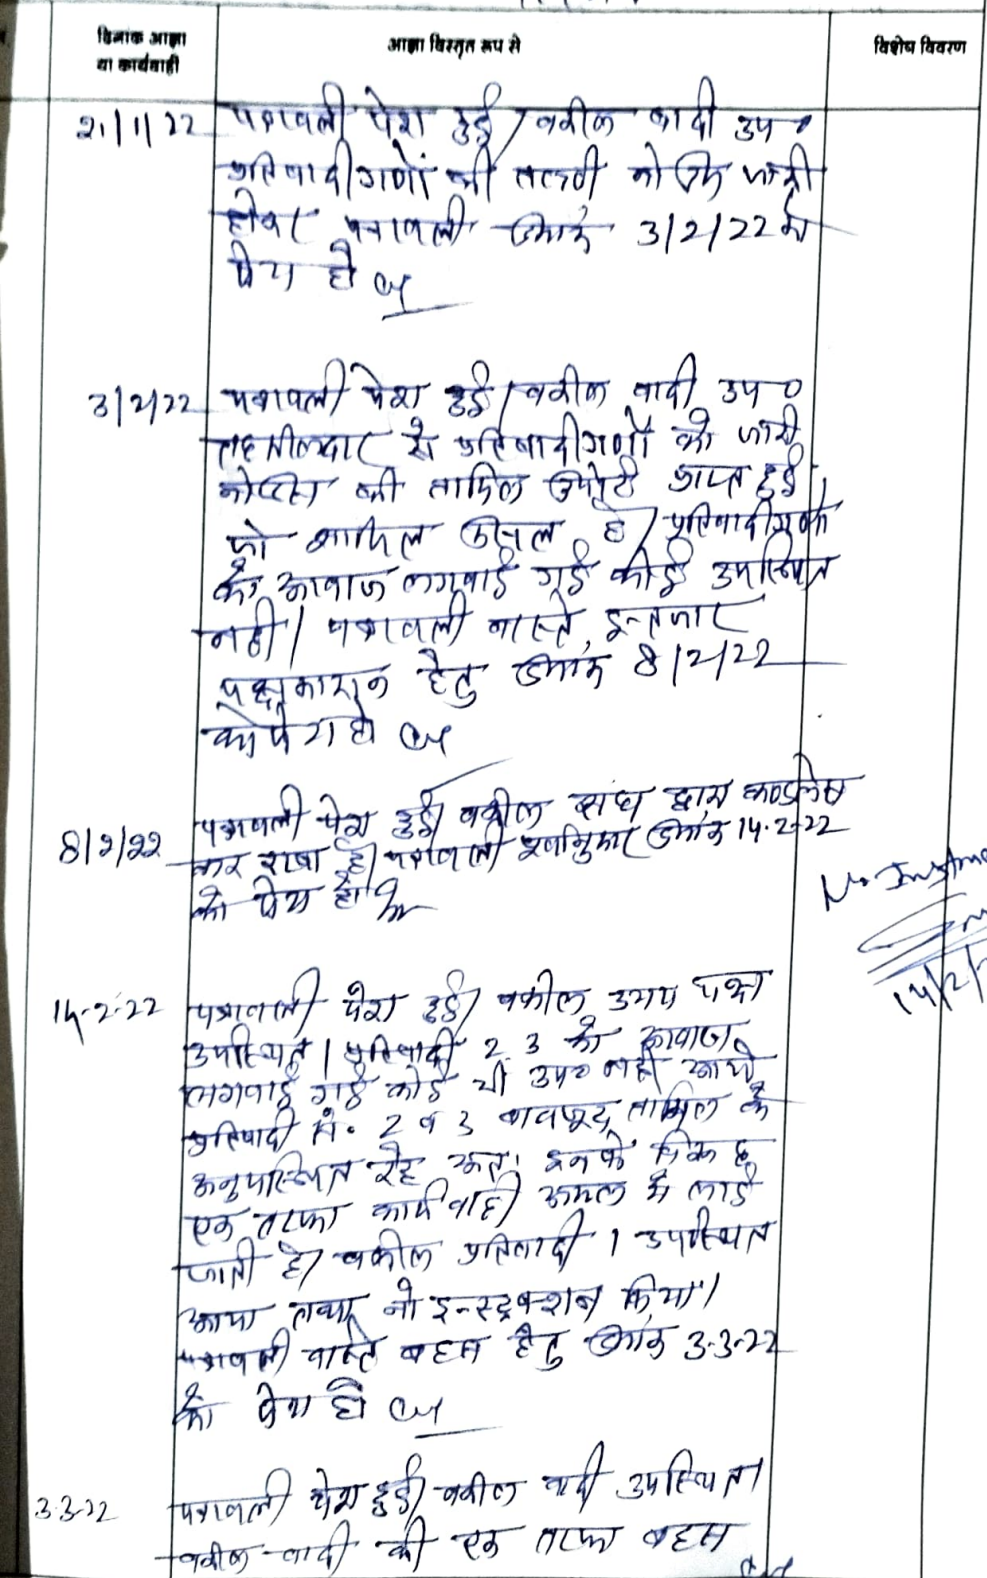 दिनांक आज्ञा
या कार्यवाही
आज्ञा विस्तृत रूप से
विशेष विवरण
21/1/22 पत्रावली पेश हुई। वकील वादी उप०
प्रतिवादीगणों की तलबी नोटिस जारी
होकर पत्रावली दिनांक 3/2/22 को
पेश हो
3/2/22 पत्रावली पेश हुई। वकील वादी उप०
तहसीलदार से प्रतिवादीगणों को जारी
नोटिस की तामिल रिपोर्ट प्राप्त हुई,
जो शामिल मिसल है। प्रतिवादीगणों
को आवाज लगवाई गई कोई उपस्थित
नही। पत्रावली वास्ते इन्तजार
पक्षकारान हेतु दिनांक 8/2/22
को पेश हो
8/2/22 पत्रावली पेश हुई। वकील संघ द्वारा
कर रखा है। पत्रावली दिनांक 14.2.22
को पेश हो
No Instruc
14/2/
14-2-22 पत्रावली पेश हुई। वकील उभय पक्ष
उपस्थित। प्रतिवादी 2, 3 को आवाज
लगवाई गई कोई भी उप० नही आये
प्रतिवादी सं. 2 व 3 बावजूद तामिल के
अनुपस्थित रहे अतः इनके विरूद्ध
एक तरफा कार्यवाही अमल मे लाई
जाती है। वकील प्रतिवादी 1 उपस्थित
आया तथा नो इन्स्ट्रक्शन किया।
पत्रावली वास्ते बहस हेतु दिनांक 3-3-22
को पेश हो
3-3-22 पत्रावली पेश हुई। वकील वादी उपस्थित।
वकील वादी की एक तरफा बहस